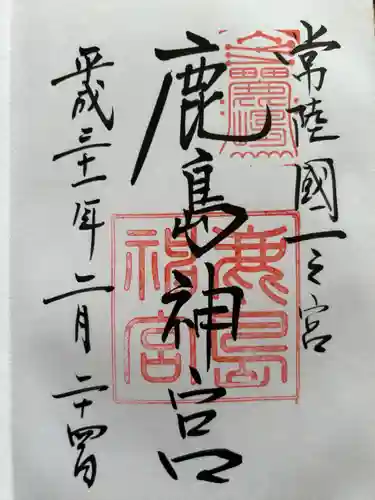 常陸國一之宮
鹿島神宮
平成三十一年二月二十四日
鹿島
神宮